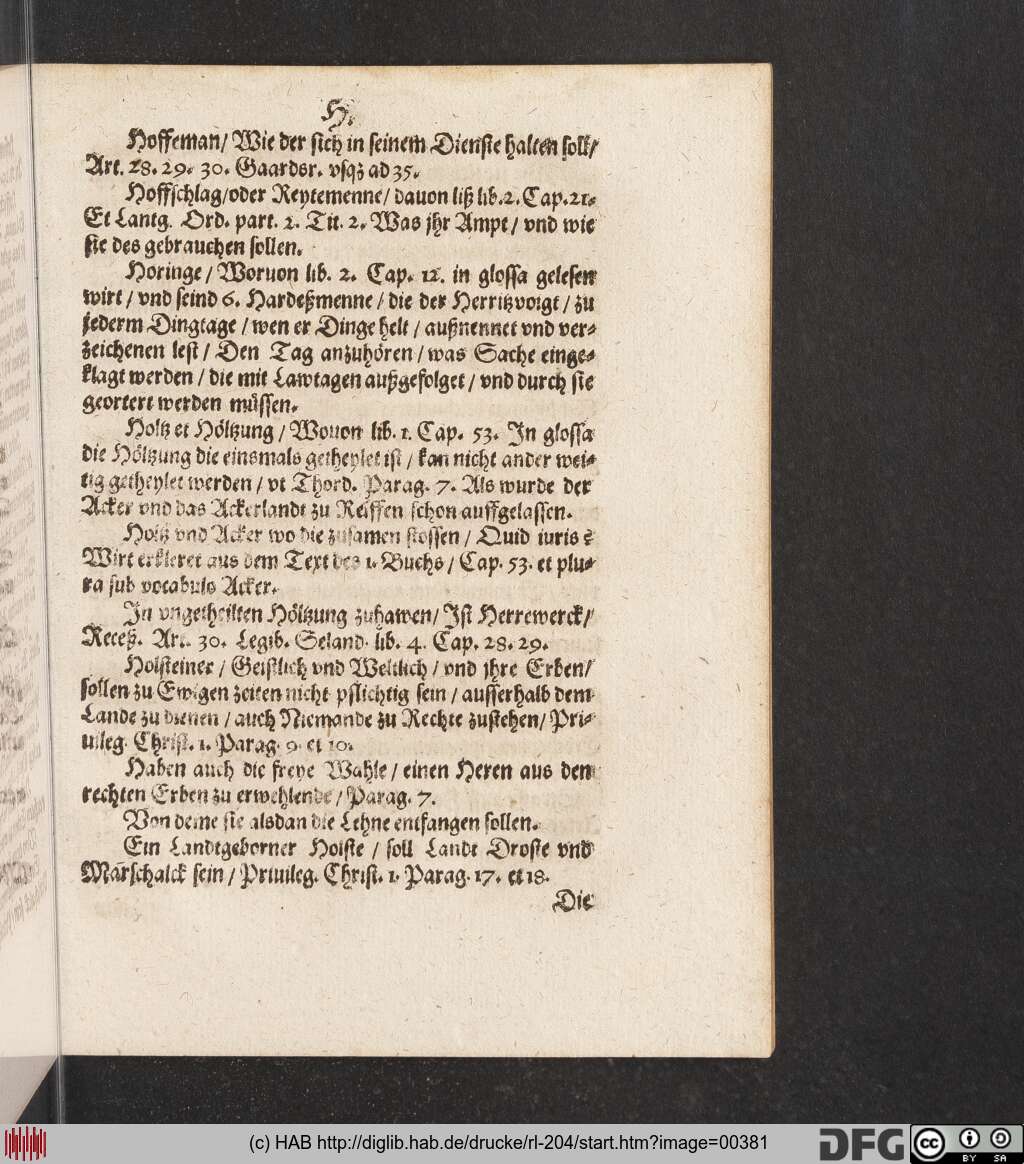 H.
Hoffeman/ Wie der sich in seinem Dienste halten soll/
Art. 28. 29. 30. Gaardsr. vsqz ad 35.
Hoffschlag/oder Reytemenne/ dauon liß lib. 2. Cap. 21.
Et Lantg. Ord. part. 2. Tit. 2. Was jhr Ampt / vnd wie
sie des gebrauchen sollen.
Horinge / Woruon lib. 2. Cap. 12. in glossa gelesen
wirt / vnd seind 6. Hardeßmenne / die der Herritzvoigt / zu
jederm Dingtage / wen er Dinge helt / außnennet vnd ver-
zeichenen lest / Den Tag anzuhören / was Sache einge-
klagt werden / die mit Lawtagen außgefolget / vnd durch sie
geortert werden müssen.
Holtz et Höltzung / Wouon lib. 1. Cap. 53. In glossa
die Höltzung die einsmals getheylet ist / kan nicht ander wei-
tig getheylet werden / vt Thord. Parag. 7. Als wurde der
Acker vnd das Ackerlandt zu Reiffen schon auffgelassen.
Holtz vnd Acker wo die zusamen stossen / Quid iuris?
Wirt erkleret aus dem Text des 1. Buchs / Cap. 53. et plu-
ra sub vocabulo Acker.
In vngetheilten Höltzung zuhawen/ Ist Herrewerck/
Receß. Art. 30. Legib. Seland. lib. 4. Cap. 28. 29.
Holsteiner / Geistlich vnd Weltlich / vnd jhre Erben/
sollen zu Ewigen zeiten nicht pflichtig sein / ausserhalb dem
Lande zu dienen / auch Niemande zu Rechte zustehen/ Pri-
uileg. Christ. 1. Parag. 9. et 10.
Haben auch die freye Wahle / einen Heren aus den
rechten Erben zu erwehlende / Parag. 7.
Von deme sie alsdan die Lehne entfangen sollen.
Ein Landtgeborner Holste / soll Landt Droste vnd
Marschalck sein / Priuileg. Christ. 1. Parag. 17. et 18.
Die
(c) HAB http://diglib.hab.de/drucke/rl-204/start.htm?image=00381
DFG
cc
BY SA